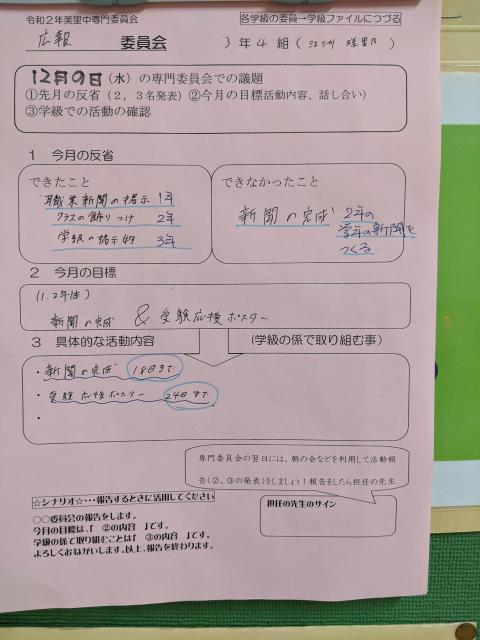 令和2年美里中専門委員会
各学級の委員→学級ファイルにつづる
広報 委員会 3年4組(
12月9日(水)の専門委員会での議題
①先月の反省(2,3名発表)②今月の目標活動内容、話し合い)
③学級での活動の確認
1 今月の反省
できたこと
職業新聞の掲示 1年
クラスの飾りつけ 2年
学級の掲示物 3年
できなかったこと
新聞の完成 2年の
学年の新聞を
つくる
2 今月の目標
(1.2年生)
新聞の完成 & 受験応援ポスター
3 具体的な活動内容 (学級の係で取り組む事)
・新聞の完成 18日まで
・受験応援ポスター 24日まで
・
専門委員会の翌日には、朝の会などを利用して活動報
告(②、③の発表)をしましょう!報告をしたら担任の先生
☆シナリオ☆・・・報告するときに活用してください
〇〇委員会の報告をします。
今月の目標は、「 ②の内容 」です。
学級の係で取り組むことは「 ③の内容 」です。
よろしくおねがいします。以上、報告を終わります。
担任の先生のサイン